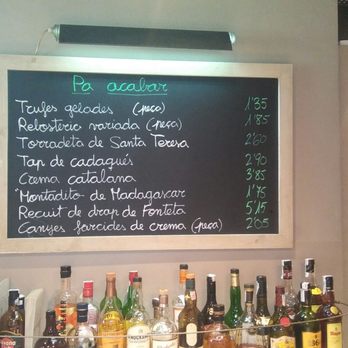 Pa acabar
Trufes gelades (peça) 1'35
Rebosteria variada (peça) 1'85
Torradeta de Santa Teresa 2'60
Tap de cadaqués 2'90
Crema catalana 3'85
Montadito de Madagascar 1'75
Recuit de drap de Fonteta 5'15
Canyes farcides de crema (peça) 2'05